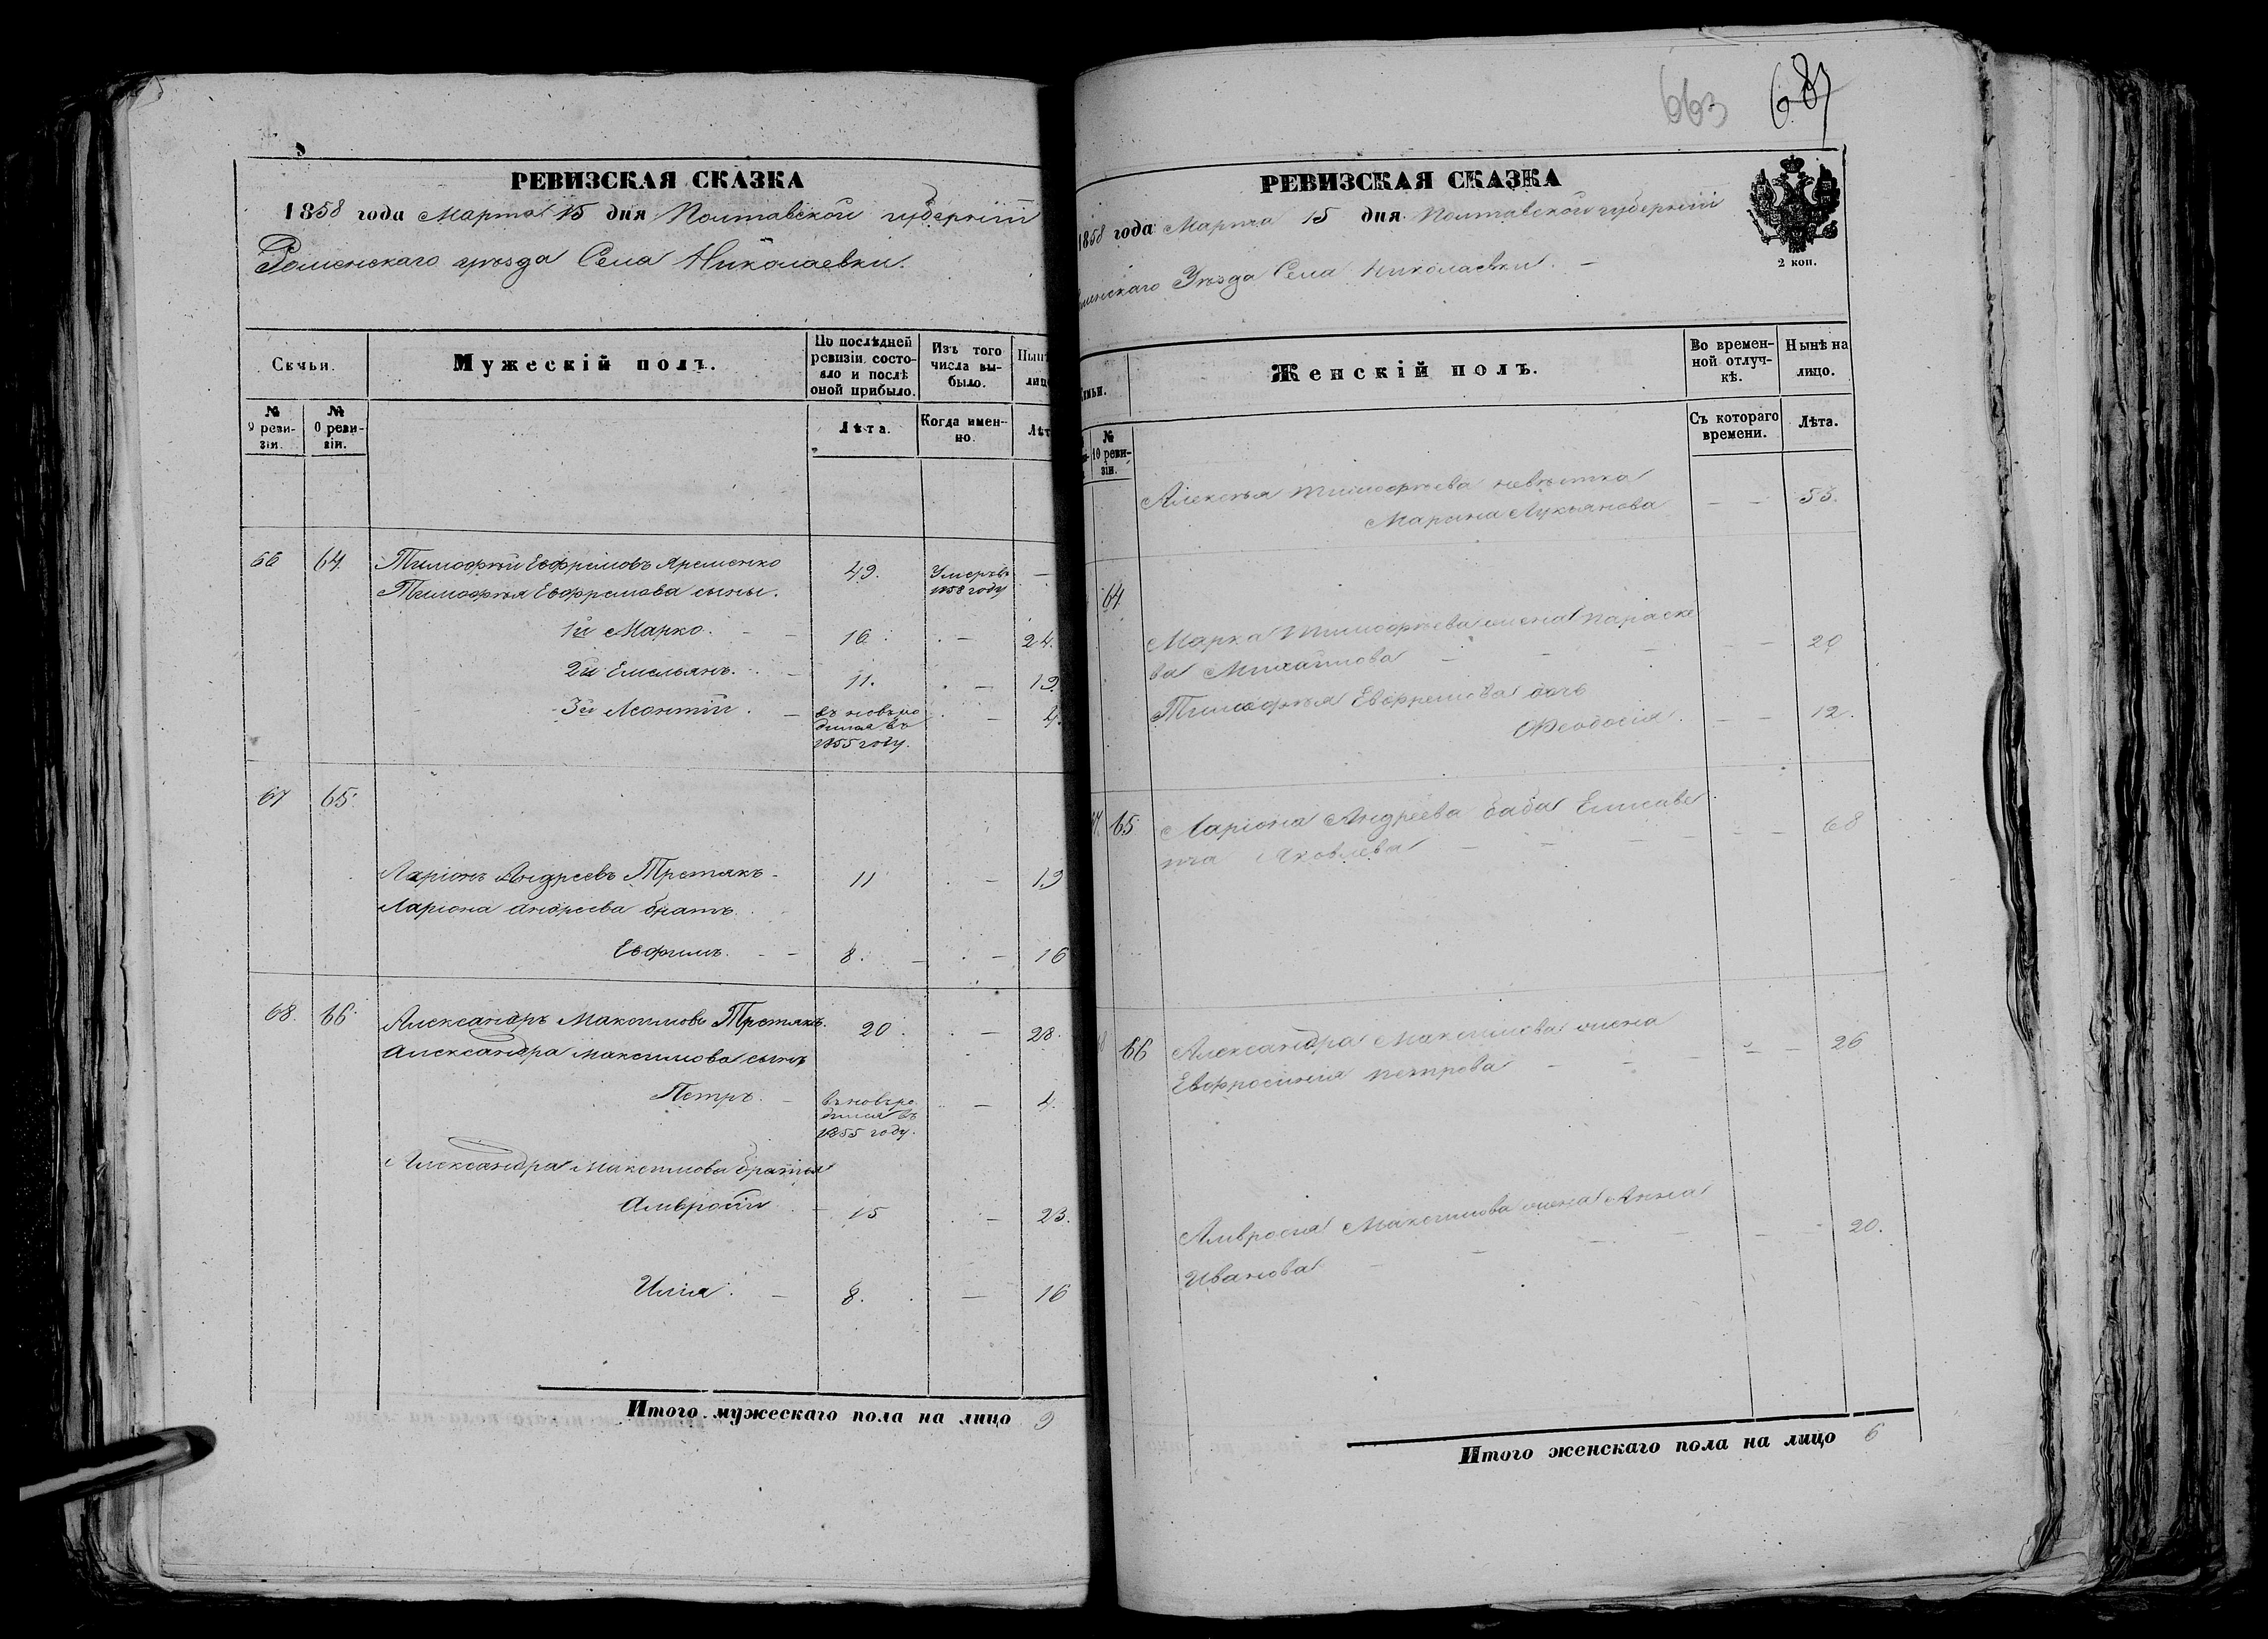 РЕВИЗСКАЯ СКАЗКА
1858 года Марта 15 дня Полтавской губернїй
Роменскаго уѣзда Села Николаевки.
Семьи.
Мужескій полъ.
По послѣдней ревизіи состояло и послѣ оной прибыло.
Изъ того числа выбыло.
№ 9 ревизіи.
№ 0 ревизіи.
Лѣта.
Когда именно.
66 64 Тимофѣй Евфремовъ Яременко 49. Умеръ въ 1858 году —
Тимофѣя Евфремова сыны.
1й Марко. 16 — 24.
2й Емельянъ. 11. — 19.
3й Леонтій. въ новѣ родился въ 1855 году. — 4.
67 65.
Ларіонъ Андреевъ Третякъ 11 — 19
Ларіона Андреева братъ
Евфимъ. 8. — 16
68. 66. Александръ Максимовъ Третякъ. 20. — 28.
Александра Максимова сынъ
Петръ. въ новѣ родился въ 1855 году. — 4.
Александра Максимова братья
Амвросій 15 — 23.
Илія. 8. — 16
Итого мужескаго пола на лицо 9
663 687
РЕВИЗСКАЯ СКАЗКА
1858 года Марта 15 дня Полтавской губерніи
Уѣзда Села Николаевки. —
2 коп.
Женскій полъ.
Во временной отлучкѣ.
Нынѣ на лицо.
№ 10 ревизіи.
Съ котораго времени.
Лѣта.
Алексѣя Тимофѣева невѣстка
Марина Лукьянова — — 55.
64.
Марка Тимофѣева жена Параске
ва Михайлова — — 20
Тимофѣя Евфремова дочь
Феодосія. — — 12.
67. 65 Ларіона Андреева баба Елисаве
та Яковлева — — 68
66 Александра Максимова жена
Евфросинія Петрова — — 26
Амвросія Максимова жена Анна
Иванова — — 20.
Итого женскаго пола на лицо 6